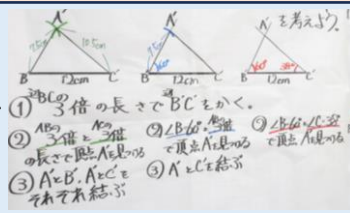 A' A' A' を考えよう。
7.5cm 10.5cm 7.5cm 60° 60° 38°
B' 12cm C' B' 12cm C' B' 12cm C'
① 辺BCの3倍の長さでB'C'をかく。
② ABの3倍とACの3倍の長さで頂点A'を見つける
② ∠B=60°、ABの3倍で頂点A'を見つける
② ∠B=60° ∠C=38°で頂点A'を見つける
③ A'とB'、A'とC'をそれぞれ結ぶ
③ A'とC'を結ぶ